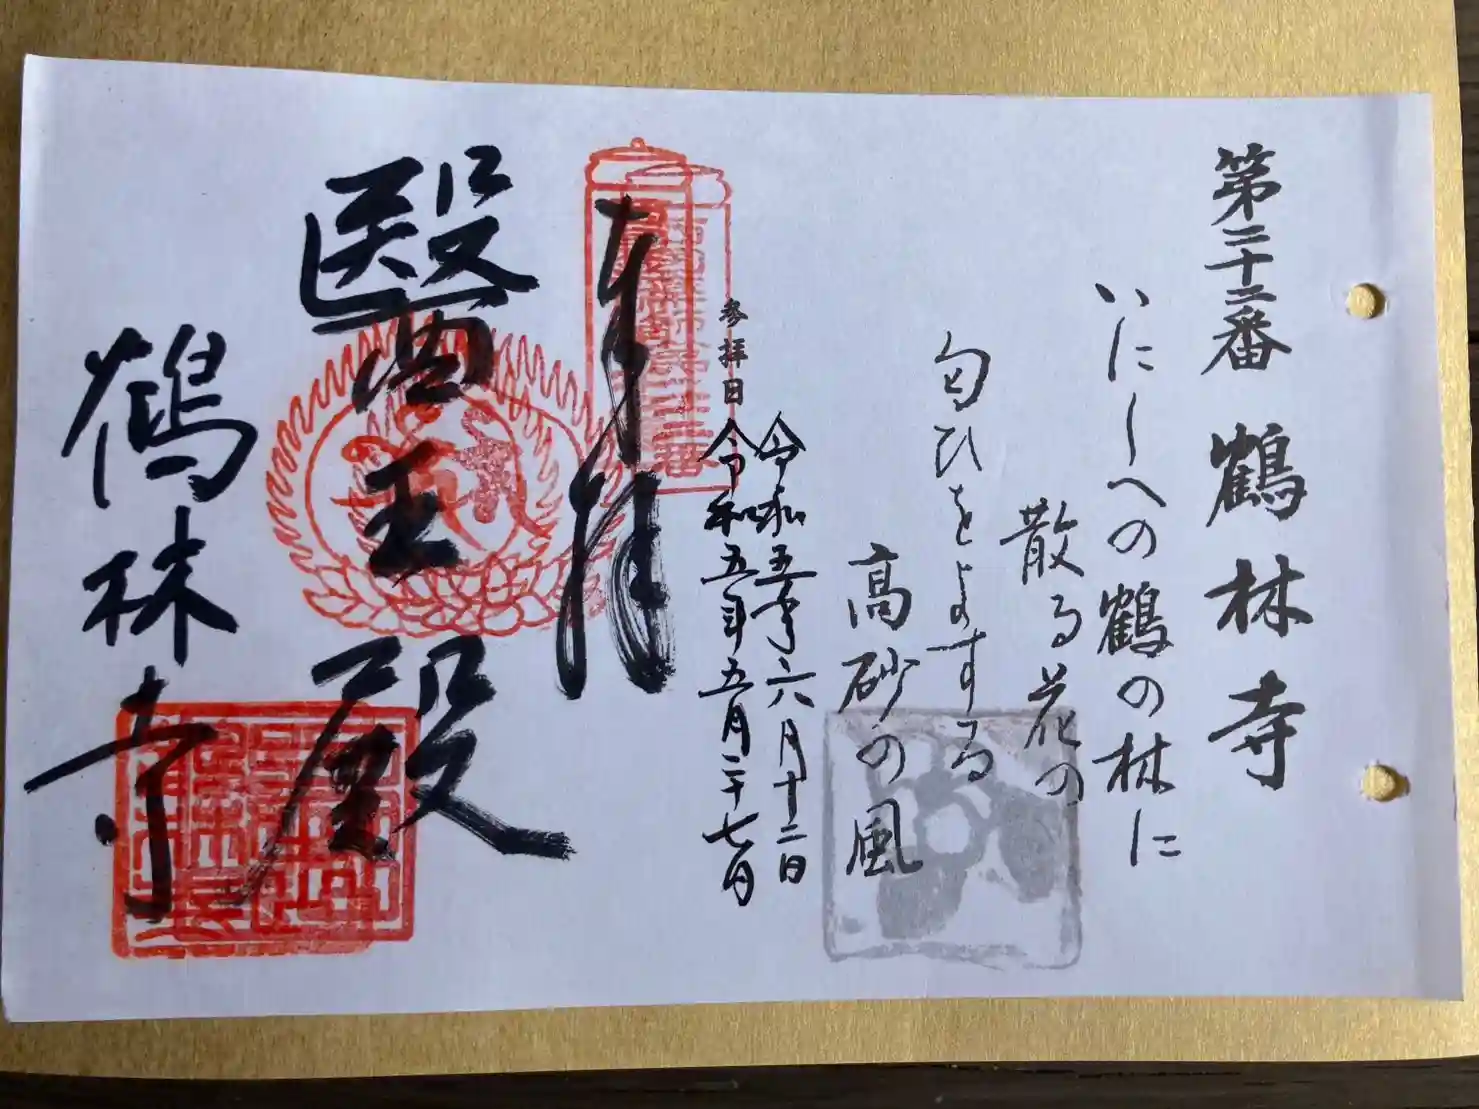 第二十二番 鶴林寺
いにしへの鶴の林に
散る花の
匂ひをよする
高砂の風
参拝日
令和五年六月十二日
令和五年五月二十七日
奉拝
醫王殿
鶴林寺